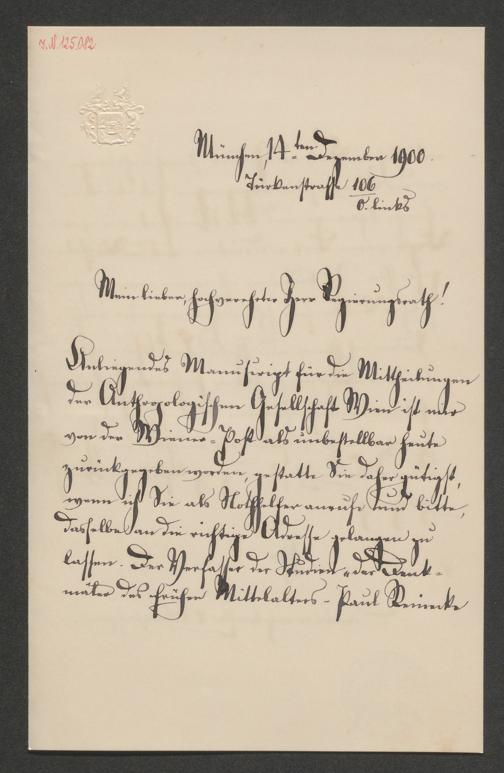 J.N. 125.082
München, 14ten Dezember 1900.
Türkenstrasse 106
0. links
Mein lieber, hochverehrter Herr Regierungsrath!
Anliegendes Manuscript für die Mittheilungen
der Anthropologischen Gesellschaft Wien ist mir
von der Wiener-Post als unbestellbar heute
zurückgegeben worden, gestatten Sie daher gütigst,
wenn ich Sie als Nothhelfer anrufe und bitte,
dasselbe an die richtige Adresse gelangen zu
lassen. Der Verfasser der Studien „der Denk-
mäler des frühen Mittelalters - Paul Reinecke